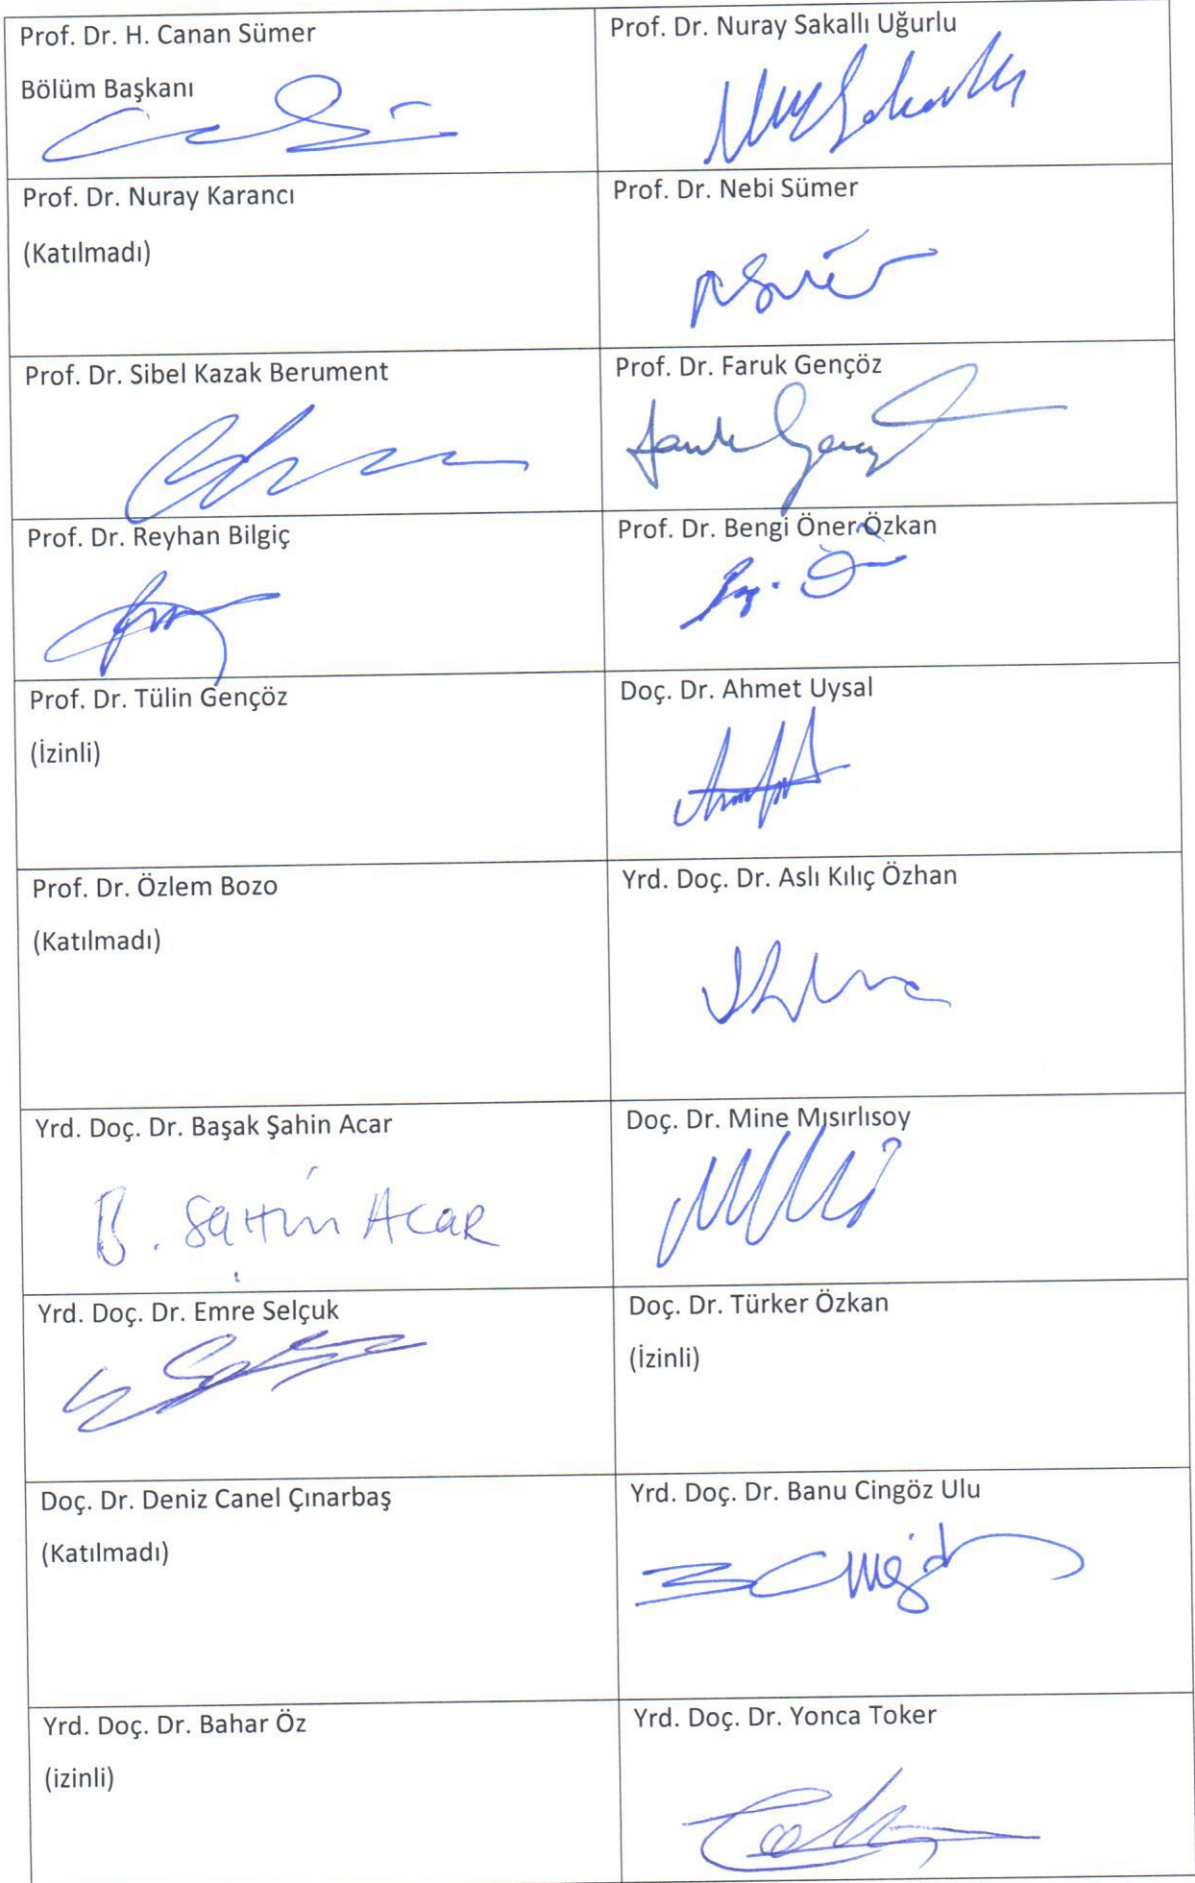 Prof. Dr. H. Canan Sümer
Bölüm Başkanı
Prof. Dr. Nuray Sakallı Uğurlu
Prof. Dr. Nuray Karancı
(Katılmadı)
Prof. Dr. Nebi Sümer
Prof. Dr. Sibel Kazak Berument
Prof. Dr. Faruk Gençöz
Prof. Dr. Reyhan Bilgiç
Prof. Dr. Bengi Öner Özkan
Prof. Dr. Tülin Gençöz
(İzinli)
Doç. Dr. Ahmet Uysal
Prof. Dr. Özlem Bozo
(Katılmadı)
Yrd. Doç. Dr. Aslı Kılıç Özhan
Yrd. Doç. Dr. Başak Şahin Acar
B. Şahin Acar
Doç. Dr. Mine Mısırlısoy
Yrd. Doç. Dr. Emre Selçuk
Doç. Dr. Türker Özkan
(İzinli)
Doç. Dr. Deniz Canel Çınarbaş
(Katılmadı)
Yrd. Doç. Dr. Banu Cingöz Ulu
Yrd. Doç. Dr. Bahar Öz
(izinli)
Yrd. Doç. Dr. Yonca Toker